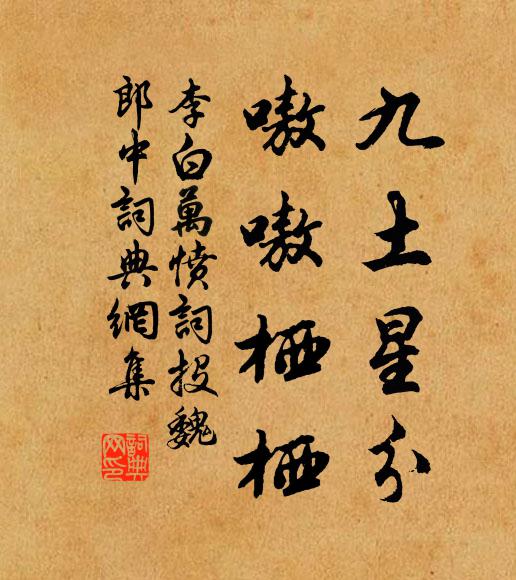 九土星分
嗷嗷栖栖
李白萬憤詞投魏
郎中詞典網集
詞典网印